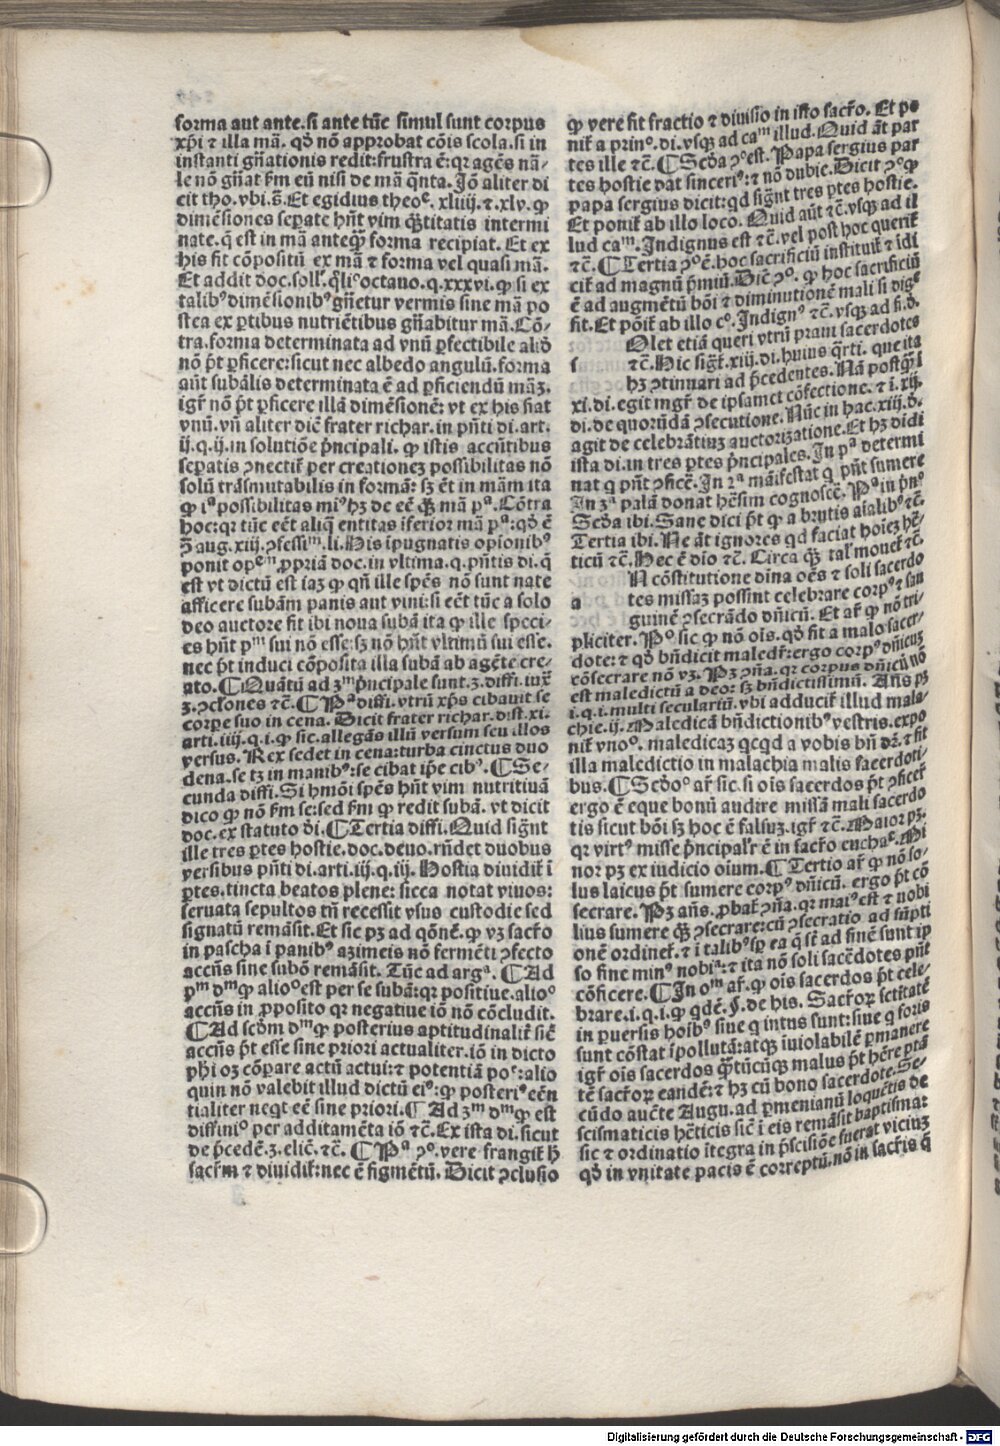 forma aut ante. si ante tūc simul sunt corpus
xp̄i ⁊ illa mā. qđ nō approbat cōis scola. si in
instanti gn̄ationis redit: frustra ē: qꝛ agēs nā-
le nō gn̄at fm̄ eū nisi de mā q̄nta. Jō aliter di
cit tho. vbi. s̄. Et egidius theoᵉ. xliiij. ⁊. xlv. ꝙ
dimēsiones seꝑate hn̄t vim q̄titatis intermi
nate. q̄ est in mā anteq̄ꝫ forma recipiat. Et ex
his fit cōpositū ex mā ⁊ forma vel quasi mā.
Et addit doc. soll'. q̄liᵒ octauo. q. xxxvi. ꝙ si ex
talibꝰ dimēsionibꝰ gn̄etur vermis sine mā po
stea ex ꝑtibus nutriētibus gn̄abitur mā. Cō-
tra. forma determinata ad vnū ꝑfectibile aliđ
nō p̄t ꝑficere: sicut nec albedo angulū. forma
aūt subālis determinata ē ad ꝑficiendū māꝫ.
igr̄ nō p̄t ꝑficere illā dimēsionē: vt ex his fiat
vnū. vn̄ aliter diē frater richar. in p̄nti di. art.
ij. q. ij. in solutiōe p̄ncipali. ꝙ istis accn̄tibus
seꝑatis ꝯnectit̄ per creationeꝫ possibilitas nō
solū trāsmutabilis in formā: sꝫ ēt in mām ita
ꝙ iᵃ possibilitas miꝰ hꝫ de eē q̄ꝫ mā pᵃ. Cōtra
hoc: qꝛ tūc eēt aliq̄ entitas īferior mā pᵃ: qđ ē
ꝯ̄ aug. xiij. ꝯfessiᵐ. li. His īpugnatis opionibꝰ
ponit opᵉᵐ ꝓpriā doc. in vltima. q. pn̄tis di. q̄
est vt dictū est iaꝫ ꝙ qn̄ ille spēs nō sunt nate
afficere subām panis aut vini: si eēt tūc a solo
deo auctore fit ibi noua subā ita ꝙ ille speci-
es hn̄t pᵐ sui nō esse: sꝫ nō hn̄t vltimū sui esse.
nec p̄t induci cōposita illa subā ab agēte cre-
ato. ¶ Quātū ad ʒᵐ p̄ncipale sunt. ʒ. diffi. iux̄
ʒ. ꝯclones ⁊c̄. ¶ Pᵃ diffi. vtrū xp̄s cibauit se
corpe suo in cena. Dicit frater richar. dist. xi.
arti. iiij. q. i. ꝙ sic. allegās illū versum seu illos
versus. Rex sedet in cena: turba cinctus duo
dena. se tꝫ in manibꝰ: se cibat ip̄e cibꝰ. ¶ Se-
cunda diffi. Si hmōi spēs hn̄t vim nutritiuā
dico ꝙ nō fm̄ se: sed fm̄ ꝙ redit subā. vt dicit
doc. ex statuto đi. ¶ Tertia diffi. Quid sign̄t
ille tres ꝑtes hostie. doc. deuo. rn̄det duobus
versibus pn̄ti di. arti. iij. q. iij. Hostia diuidit̄ ī
ꝑtes. tincta beatos plene: sicca notat viuos:
seruata sepultos tn̄ recessit vsus custodie sed
signatū remāsit. Et sic pꝫ ad qōnē. ꝙ vꝫ sacr̄o
in pascha ī panibꝰ aꝫimeis nō fermēti ꝯfecto
accn̄s sine subō remāsit. Tūc ad argᵃ. ¶ Ad
pᵐ dᵐ ꝙ alioᵒ est per se subā: qꝛ positiue. alioᵒ
accn̄s in ꝓposito qꝛ negatiue iō nō cōcludit.
¶ Ad scđm dᵐ ꝙ posterius aptitudinalit̄ siē
accn̄s p̄t esse sine priori actualiter. iō in dicto
phi oꝫ cōꝑare actū actui: ⁊ potentiā poᵉ: alio
quin nō valebit illud dictū eiꝰ: ꝙ posteriꝰ eēn
tialiter neqt eē sine priori. ¶ Ad ʒᵐ dᵐ ꝙ est
diffiniᵒ per additamēta iō ⁊c̄. Ex ista di. sicut
de p̄cedē. ʒ. elic̄. ⁊c̄. ¶ Pᵃ ꝯᵒ. vere frangit̄ h̄
sacr̄m ⁊ diuidit̄: nec ē figmētū. Dicit ꝯclusio
ꝙ vere fit fractio ⁊ diuisio in isto sacr̄o. Et po
nit̄ a prinᵒ. di. vsqꝫ ad caᵐ illud. Quid āt par
tes ille ⁊c̄. ¶ Scđa ꝯᵒ est. Papa sergius par
tes hostie dāt sinceriꝰ: ⁊ nō dubie. Dicit ꝯᵒ ꝙ
papa sergius dicit: qd sign̄t tres ꝑtes hostie.
Et ponit̄ ab illo loco. Quid aūt ⁊c̄. vsqꝫ ad il
lud caᵐ. Indignus est ⁊c̄. vel post hoc querit̄
⁊c̄. ¶ Tertia ꝯᵒ ē. hoc sacrificiū instituit̄ ⁊ īdi
cit̄ ad magnū p̄miū. Diē ꝯᵒ. ꝙ hoc sacrificiū
ē ad augmētū bōi ⁊ diminutionē mali si dige
fit. Et pōit̄ ab illo cᵒ. Indignꝰ ⁊c̄. vsqꝫ ad fi. đ.
Olet etiā queri vtrū praui sacerdotes
s ⁊c̄. Hic sigt̄. xiij. di. huius q̄rti. que ita
hꝫ ꝯtinuari ad p̄cedentes. Nā postq̄ꝫ ī
xi. di. egit mgr̄ de ipsamet cōfectione. ⁊ ī. xij.
di. de quorūdā ꝯsecutione. Nūc in hac. xiij. đ.
agit de celebrātiuꝫ auctoriꝫatione. Et hꝫ diđi
ista di. in tres ꝑtes p̄ncipales. In pᵃ determi
nat q pn̄t ꝯficē. In 2ᵃ māifestat q pn̄t sumere
In ʒᵃ palā donat hēsim cognoscē. Pᵃ in p̄nᵒ
Scđa ibi. Sane dici p̄t ꝙ a brutis aīalibꝰ ⁊c̄.
Tertia ibi. Ne āt ignores qd faciat hoieꝫ hē-
ticū ⁊c̄. Hec ē dīo ⁊c̄. Circa q̄ꝫ talʳ mouet̄ ⁊c̄.
N cōstitutione dīna oēs ⁊ soli sacerdo
a tes missaꝫ possint celebrare corpꝰ ⁊ san
guinē ꝯsecrādo dn̄icū. Et ar̄ ꝙ nō tri-
pliciter. Pᵒ sic ꝙ nō oīs. qđ fit a malo sacer-
dote: ⁊ qđ bn̄dicit maledr̄: ergo corpꝰ dn̄icuꝫ
cōsecrare nō vꝫ. Pꝫ ꝯn̄a. qꝛ corpus dn̄icū nō
est maledictū a deo: sꝫ bn̄dictissimū. An̄s pꝫ
i. q. i. multi seculariū. vbi adducit̄ illud mala-
chie. ij. Maledicā bn̄dictionibꝰ vestris. expo
nit̄ vnoᵒ. maledicaꝫ qcqd a vobis bn̄ dr̄. ⁊ fit
illa maledictio in malachia malis sacerdoti-
bus. ¶ Scđoᵒ ar̄ sic. si oīs sacerdos p̄t ꝯficer̄
ergo ē eque bonū audire missā mali sacerdo
tis sicut bōi sꝫ hoc ē falsuꝫ. igr̄ ⁊c̄. Maior pꝫ.
qꝛ virtꝰ misse p̄ncipalʳ ē in sacr̄o euchaᵉ. Mi
nor pꝫ ex iudicio oīum. ¶ Tertio ar̄ ꝙ nō so-
lus laicus p̄t sumere corpꝰ dn̄icū. ergo p̄t cō
secrare. Pꝫ an̄s. ꝓbat̄ ꝯn̄a. qꝛ maiꝰ est ⁊ nobi
lius sumere q̄ꝫ ꝯsecrare: cū ꝯsecratio ad sūpti
onē ordinet̄. ⁊ ī talibꝰ sp̄ ea q̄ st̄ ad finē sunt ip
so fine minꝰ nobiᵃ: ⁊ ita nō soli sacēdotes pn̄t
cōficere. ¶ In oᵐ ar̄. ꝙ oīs sacerdos p̄t cele-
brare. i. q. i. ꝙ qdē. §. de his. Sacr̄oꝝ sctitatē
in ꝑuersis hoībꝰ siue q intus sunt: siue q foris
sunt cōstat īpollutā: atqꝫ īuiolabilē ꝑmanere
igr̄ oīs sacerdos q̄tūcūqꝫ malus p̄t hēre ptā
tē sacr̄oꝝ eandē: ⁊ hꝫ cū bono sacerdote. Se-
cūdo auc̄te Augu. ad ꝑmenianū loquētis de
scismaticis hēticis siē ī eis remāsit baptisma:
sic ⁊ ordinatio ītegra in p̄scisiōe fuerat viciuꝫ
qđ in vnitate pacis ē correptū. nō in sacr̄is q̄
Digitalisierung gefördert durch die Deutsche Forschungsgemeinschaft - DFG